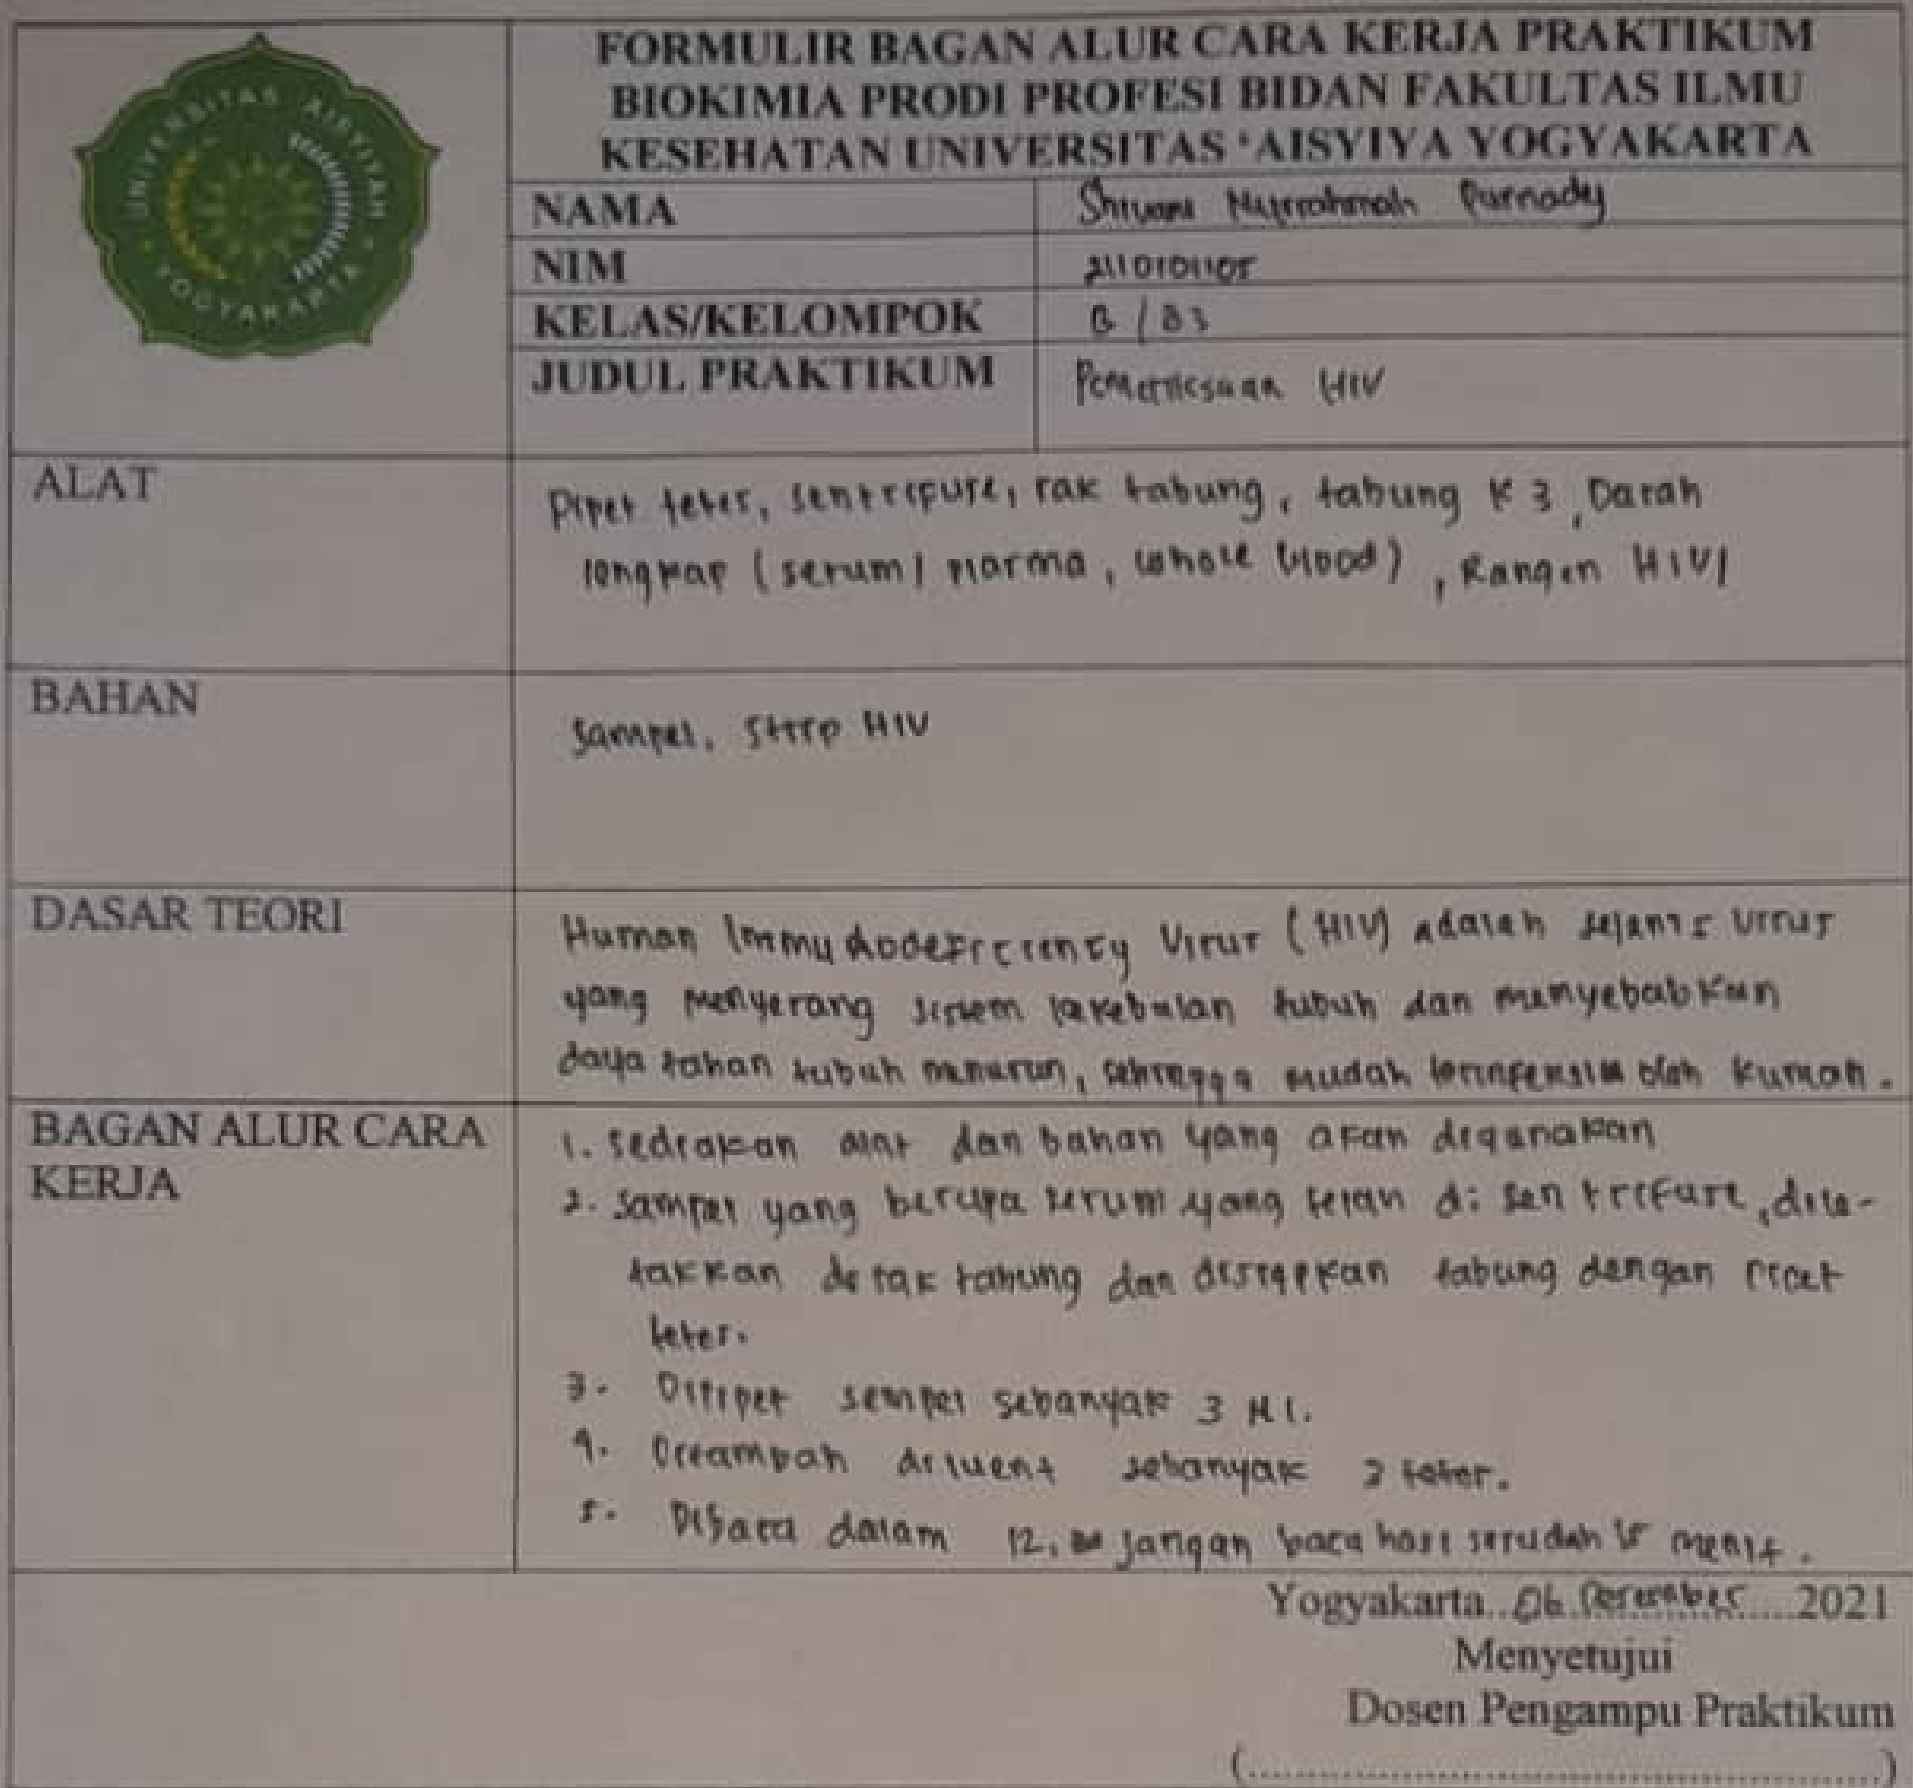 UNIVERSITAS AISYIYAH
YOGYAKARTA
FORMULIR BAGAN ALUR CARA KERJA PRAKTIKUM
BIOKIMIA PRODI PROFESI BIDAN FAKULTAS ILMU
KESEHATAN UNIVERSITAS 'AISYIYA YOGYAKARTA
NAMA
Nurrahmah Purnady
NIM
2110101105
KELAS/KELOMPOK
B / B3
JUDUL PRAKTIKUM
Pemeriksaan HIV
ALAT
Pipet tetes, sentrifuse, rak tabung, tabung K3, Darah
lengkap (serum/ plasma, whole blood), HIV
BAHAN
Sampel, Strip HIV
DASAR TEORI
Human Immunodeficiency Virus (HIV) adalah sejenis virus
yang menyerang sistem kekebalan tubuh dan menyebabkan
daya tahan tubuh menurun, sehingga mudah terinfeksi oleh kuman.
BAGAN ALUR CARA
KERJA
1. Sediakan alat dan bahan yang akan digunakan
2. Sampel yang berupa serum yang telah di sentrifuse, dile-
takkan di rak tabung dan disiapkan tabung dengan pipet
tetes.
3. Dipipet sempel sebanyak 3 Ml.
4. diluent sebanyak tetes.
5. Dibaca dalam 12, jangan baca hasil sesudah 15 menit.
Yogyakarta..06 Desember....2021
Menyetujui
Dosen Pengampu Praktikum
(........................................)